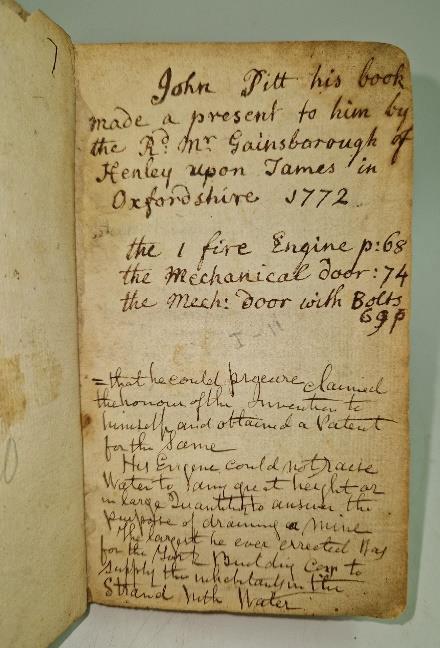 John Pitt his book
made a present to him by
the Rd. Mr. Gainsborough of
Henley upon Tames in
Oxfordshire 1772
the 1 fire Engine p: 68
the Mechanical door: 74
the Mech: door with Bolts
69 p
= that he could procure claimed
the honour of the Invention to
himself, and obtained a Patent
for the Same
His Engine could not raise
Water to any great height or
in large Quantity to answer the
purpose of draining a mine
The largest he ever errected Was
for the York Building Comp to
supply the inhabitants in the
Strand With Water